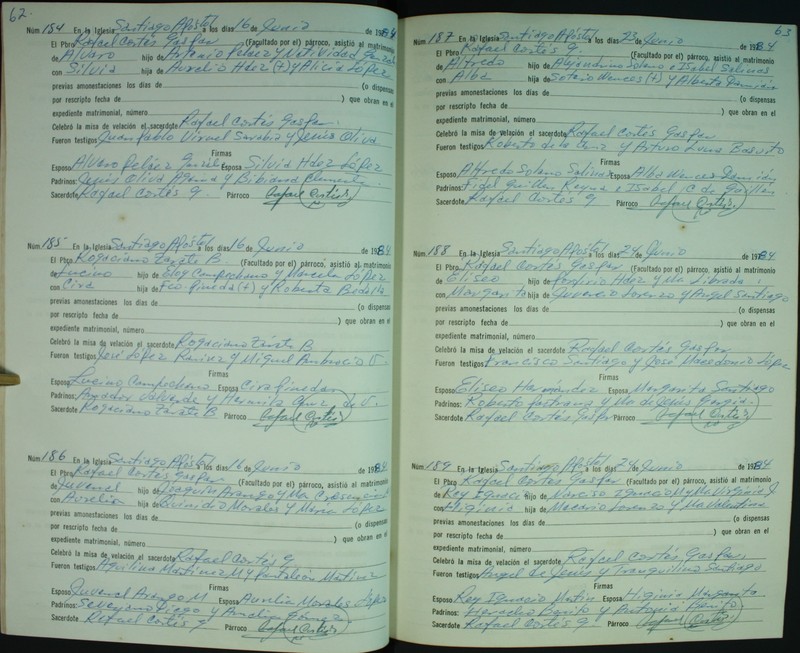 62.
Núm. 154 En la Iglesia Santiago Apóstol a los días 16 de Junio de 1984
El Pbro Rafael Cortés Gaspar (Facultado por el) párroco, asistió al matrimonio
de Alvaro hijo de Antonio Peláez y Natividad
con Silvia hija de Aurelio Hdez (+) y Alicia López
previas amonestaciones los días de (o dispensas
por rescripto fecha de ) que obran en el
expediente matrimonial, número
Celebró la misa de velación el sacerdote Rafael Cortés Gaspar
Fueron testigos Juan Pablo y Jesús Oliva
Firmas
Esposo Alvaro Peláez Esposa Silvia Hdez López
Padrinos: Jesús Oliva y Bibiana Clemente
Sacerdote Rafael Cortés G. Párroco Rafael Cortés
Núm. 185- En la Iglesia Santiago Apóstol a los días 16 de Junio de 1984
El Pbro. Rogaciano Zárate B. (Facultado por el) párroco, asistió al matrimonio
de Lucino hijo de Eloy Campechano y Marcela López
con Cira hija de Fco Pineda (+) y Roberta
previas amonestaciones los días de (o dispensas
por rescripto fecha de ) que obran en el
expediente matrimonial, número
Celebró la misa de velación el sacerdote Rogaciano Zárate B
Fueron testigos José López Ramírez y Miguel Ambrocio V.
Firmas
Esposo Lucino Campechano Esposa Cira Pineda
Padrinos: Amador Valverde y Herminia Cruz de V.
Sacerdote Rogaciano Zárate B Párroco Rafael Cortés
Núm. 186 En la Iglesia Santiago Apóstol a los días 16 de Junio de 1984
El Pbro Rafael Cortés Gaspar (Facultado por el) párroco, asistió al matrimonio
de Juvenal hijo de Joaquín Arango y Ma Crescencia
con Aurelia hija de Morales y María López
previas amonestaciones los días de (o dispensas
por rescripto fecha de ) que obran en el
expediente matrimonial, número
Celebró la misa de velación el sacerdote Rafael Cortés G
Fueron testigos Aquilina Martínez M y Pantaleón Martínez
Firmas
Esposo Juvenal Arango M. Esposa Aurelia Morales López
Padrinos: Severiano Diego y Amelia Gómez
Sacerdote Rafael Cortés G Párroco Rafael Cortés
63
Núm. 187 En la Iglesia Santiago Apóstol a los días 23 de Junio de 1984
El Pbro Rafael Cortés G. (Facultado por el) párroco, asistió al matrimonio
de Alfredo hijo de Alejandrino Solano e Isabel Salinas
con Alba hija de Sotero Wences (+) y Alberta Damián
previas amonestaciones los días de (o dispensas
por rescripto fecha de ) que obran en el
expediente matrimonial, número
Celebró la misa de velación el sacerdote Rafael Cortés Gaspar
Fueron testigos Roberto de la Cruz y Arturo Luna Basurto
Firmas
Esposo Alfredo Solano Salinas Esposa Alba Wences Damián
Padrinos: Fidel Guillén Reyna e Isabel C de Guillén
Sacerdote Rafael Cortés G Párroco Rafael Cortés
Núm. 188 En la Iglesia Santiago Apóstol a los días 24 de Junio de 1984
El Pbro. Rafael Cortés Gaspar (Facultado por el) párroco, asistió al matrimonio
de Eliseo hijo de Porfirio Hdez y Ma Librada
con Margarita hija de Juvencio Lorenzo y Angel Santiago
previas amonestaciones los días de (o dispensas
por rescripto fecha de ) que obran en el
expediente matrimonial, número
Celebró la misa de velación el sacerdote Rafael Cortés Gaspar
Fueron testigos Francisco Santiago y José Macedonio López
Firmas
Esposo Eliseo Hernández Esposa Margarita Santiago
Padrinos: Roberto Pastrana y Ma de Jesús García
Sacerdote Rafael Cortés Gaspar Párroco Rafael Cortés
Núm. 189 En la Iglesia Santiago Apóstol a los días 24 de Junio de 1984
El Pbro. Rafael Cortés Gaspar (Facultado por el) párroco, asistió al matrimonio
de Rey Ignacio hijo de Narciso Ignacio M y Ma Virginia
con Higinia hija de Macario Lorenzo y Ma Valentina
previas amonestaciones los días de (o dispensas
por rescripto fecha de ) que obran en el
expediente matrimonial, número
Celebró la misa de velación el sacerdote Rafael Cortés Gaspar
Fueron testigos Angel de Jesús y Tranquilino Santiago
Firmas
Esposo Rey Ignacio Esposa Higinia Margarita
Padrinos: Heraclio Benito y Antonia Benito
Sacerdote Rafael Cortés G Párroco Rafael Cortés